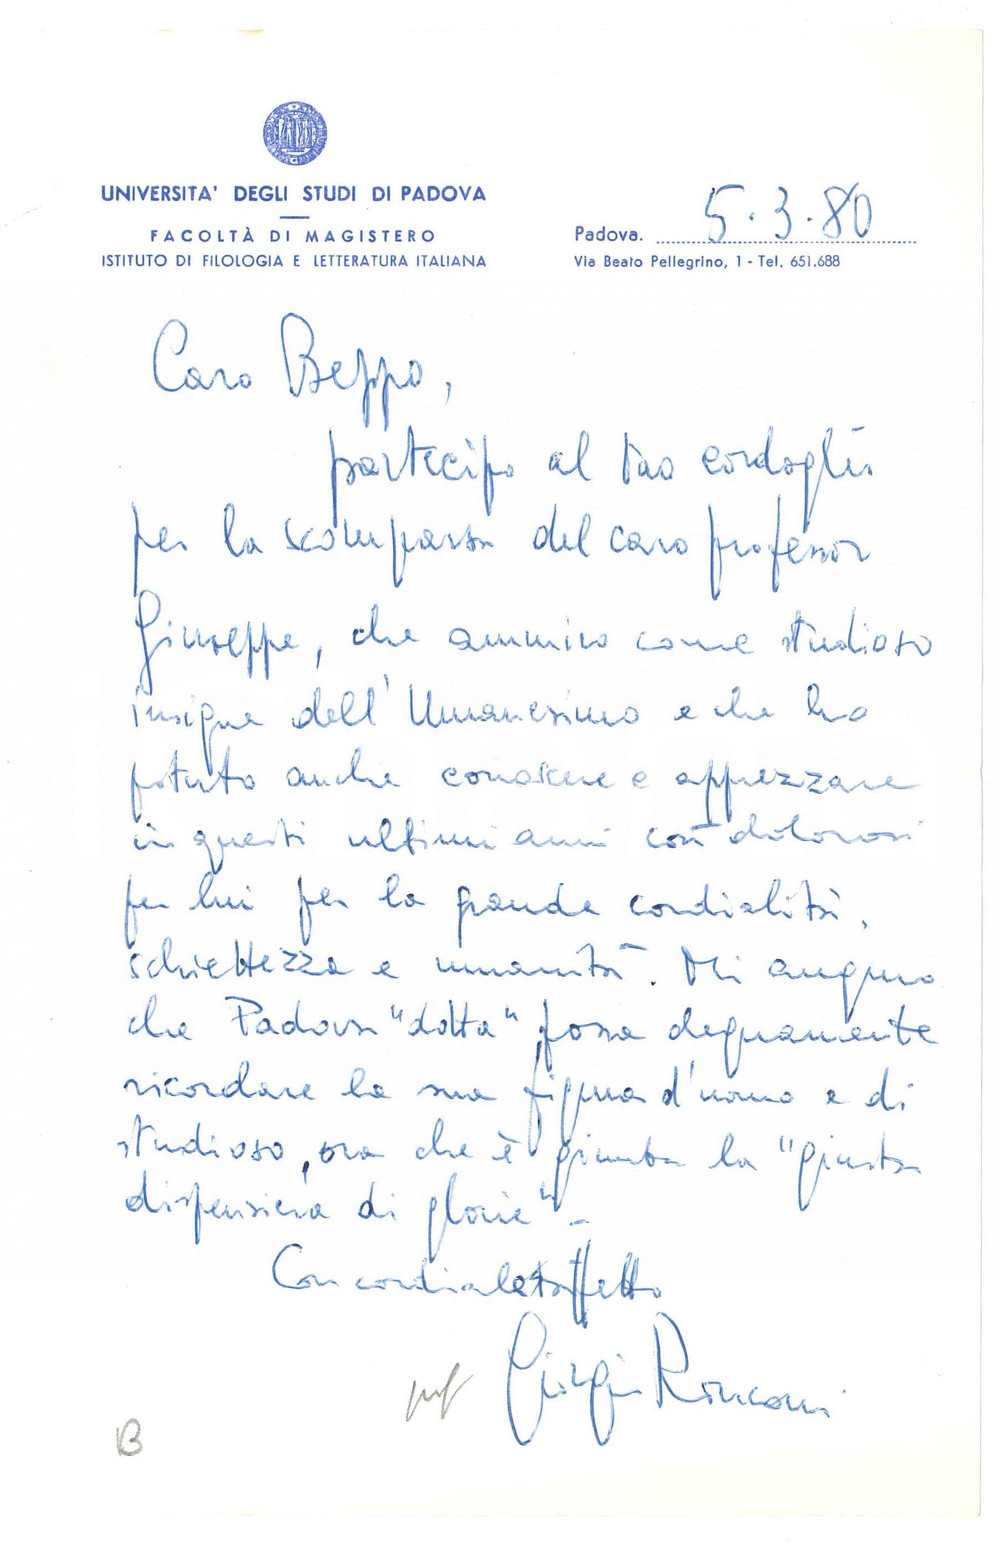 UNIVERSITA' DEGLI STUDI DI PADOVA
FACOLTÀ DI MAGISTERO
ISTITUTO DI FILOLOGIA E LETTERATURA ITALIANA
Padova. 5.3.80
Via Beato Pellegrino, 1 - Tel. 651.688
Caro Beppo,
partecipo al tuo cordoglio
per la scomparsa del caro professor
Giuseppe, che ammiro come studioso
insigne dell'Umanesimo e che ho
potuto anche conoscere e apprezzare
in questi ultimi anni così dolorosi
per lui per la grande cordialità,
schiettezza e umanità. Mi auguro
che Padova "dotta" possa degnamente
ricordare la sua figura d'uomo e di
studioso, ora che è giunta la "giusta
dispensiera di glorie"-
Con cordiale affetto
Giorgio Ronconi
prof
B